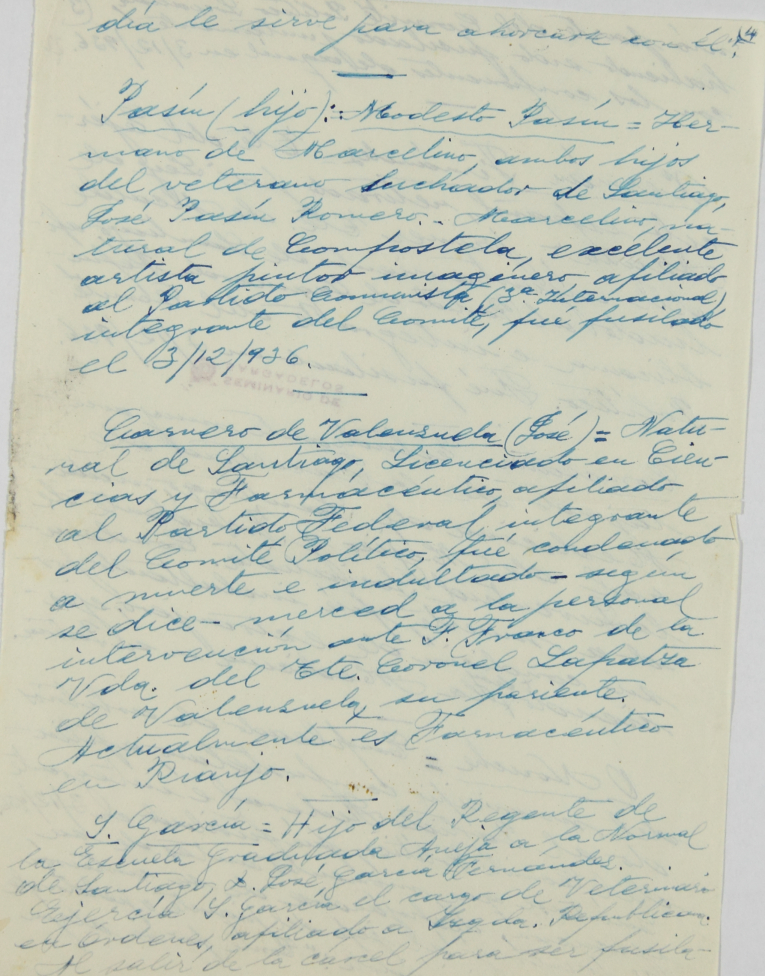 día le sirve para ahorcarse con él.
14
Pasín (hijo):. Modesto Pasín = Her-
mano de Marcelino, ambos hijos
del veterano luchador de Santiago,
José Pasín Romero.- Marcelino, na-
tural de Compostela, excelente
artista pintor imaginero afiliado
al Partido Comunista (3ª Internacional)
integrante del Comité, fué fusilado
el 3/12/936.
Carnero de Valenzuela (José) = Natu-
ral de Santiago, Licenciado en Cien-
cias y Farmacéutico, afiliado
al Partido Federal, integrante
del Comité Político, fué condenado
a muerte e indultado - según
se dice - merced a la personal
intervención ante F. Franco de la
Vda. del Tte. Coronel
de Valenzuela, su pariente.
Actualmente es Farmacéutico
en Rianjo.
S. García = Hijo del Regente de
la Escuela Graduada Aneja a la Normal
de Santiago, D. José García Fernández.
Ejercía S. García el cargo de Veterinario
en Órdenes, afiliado a Izqda. Republicana.
Al salir de la carcel para ser fusila-